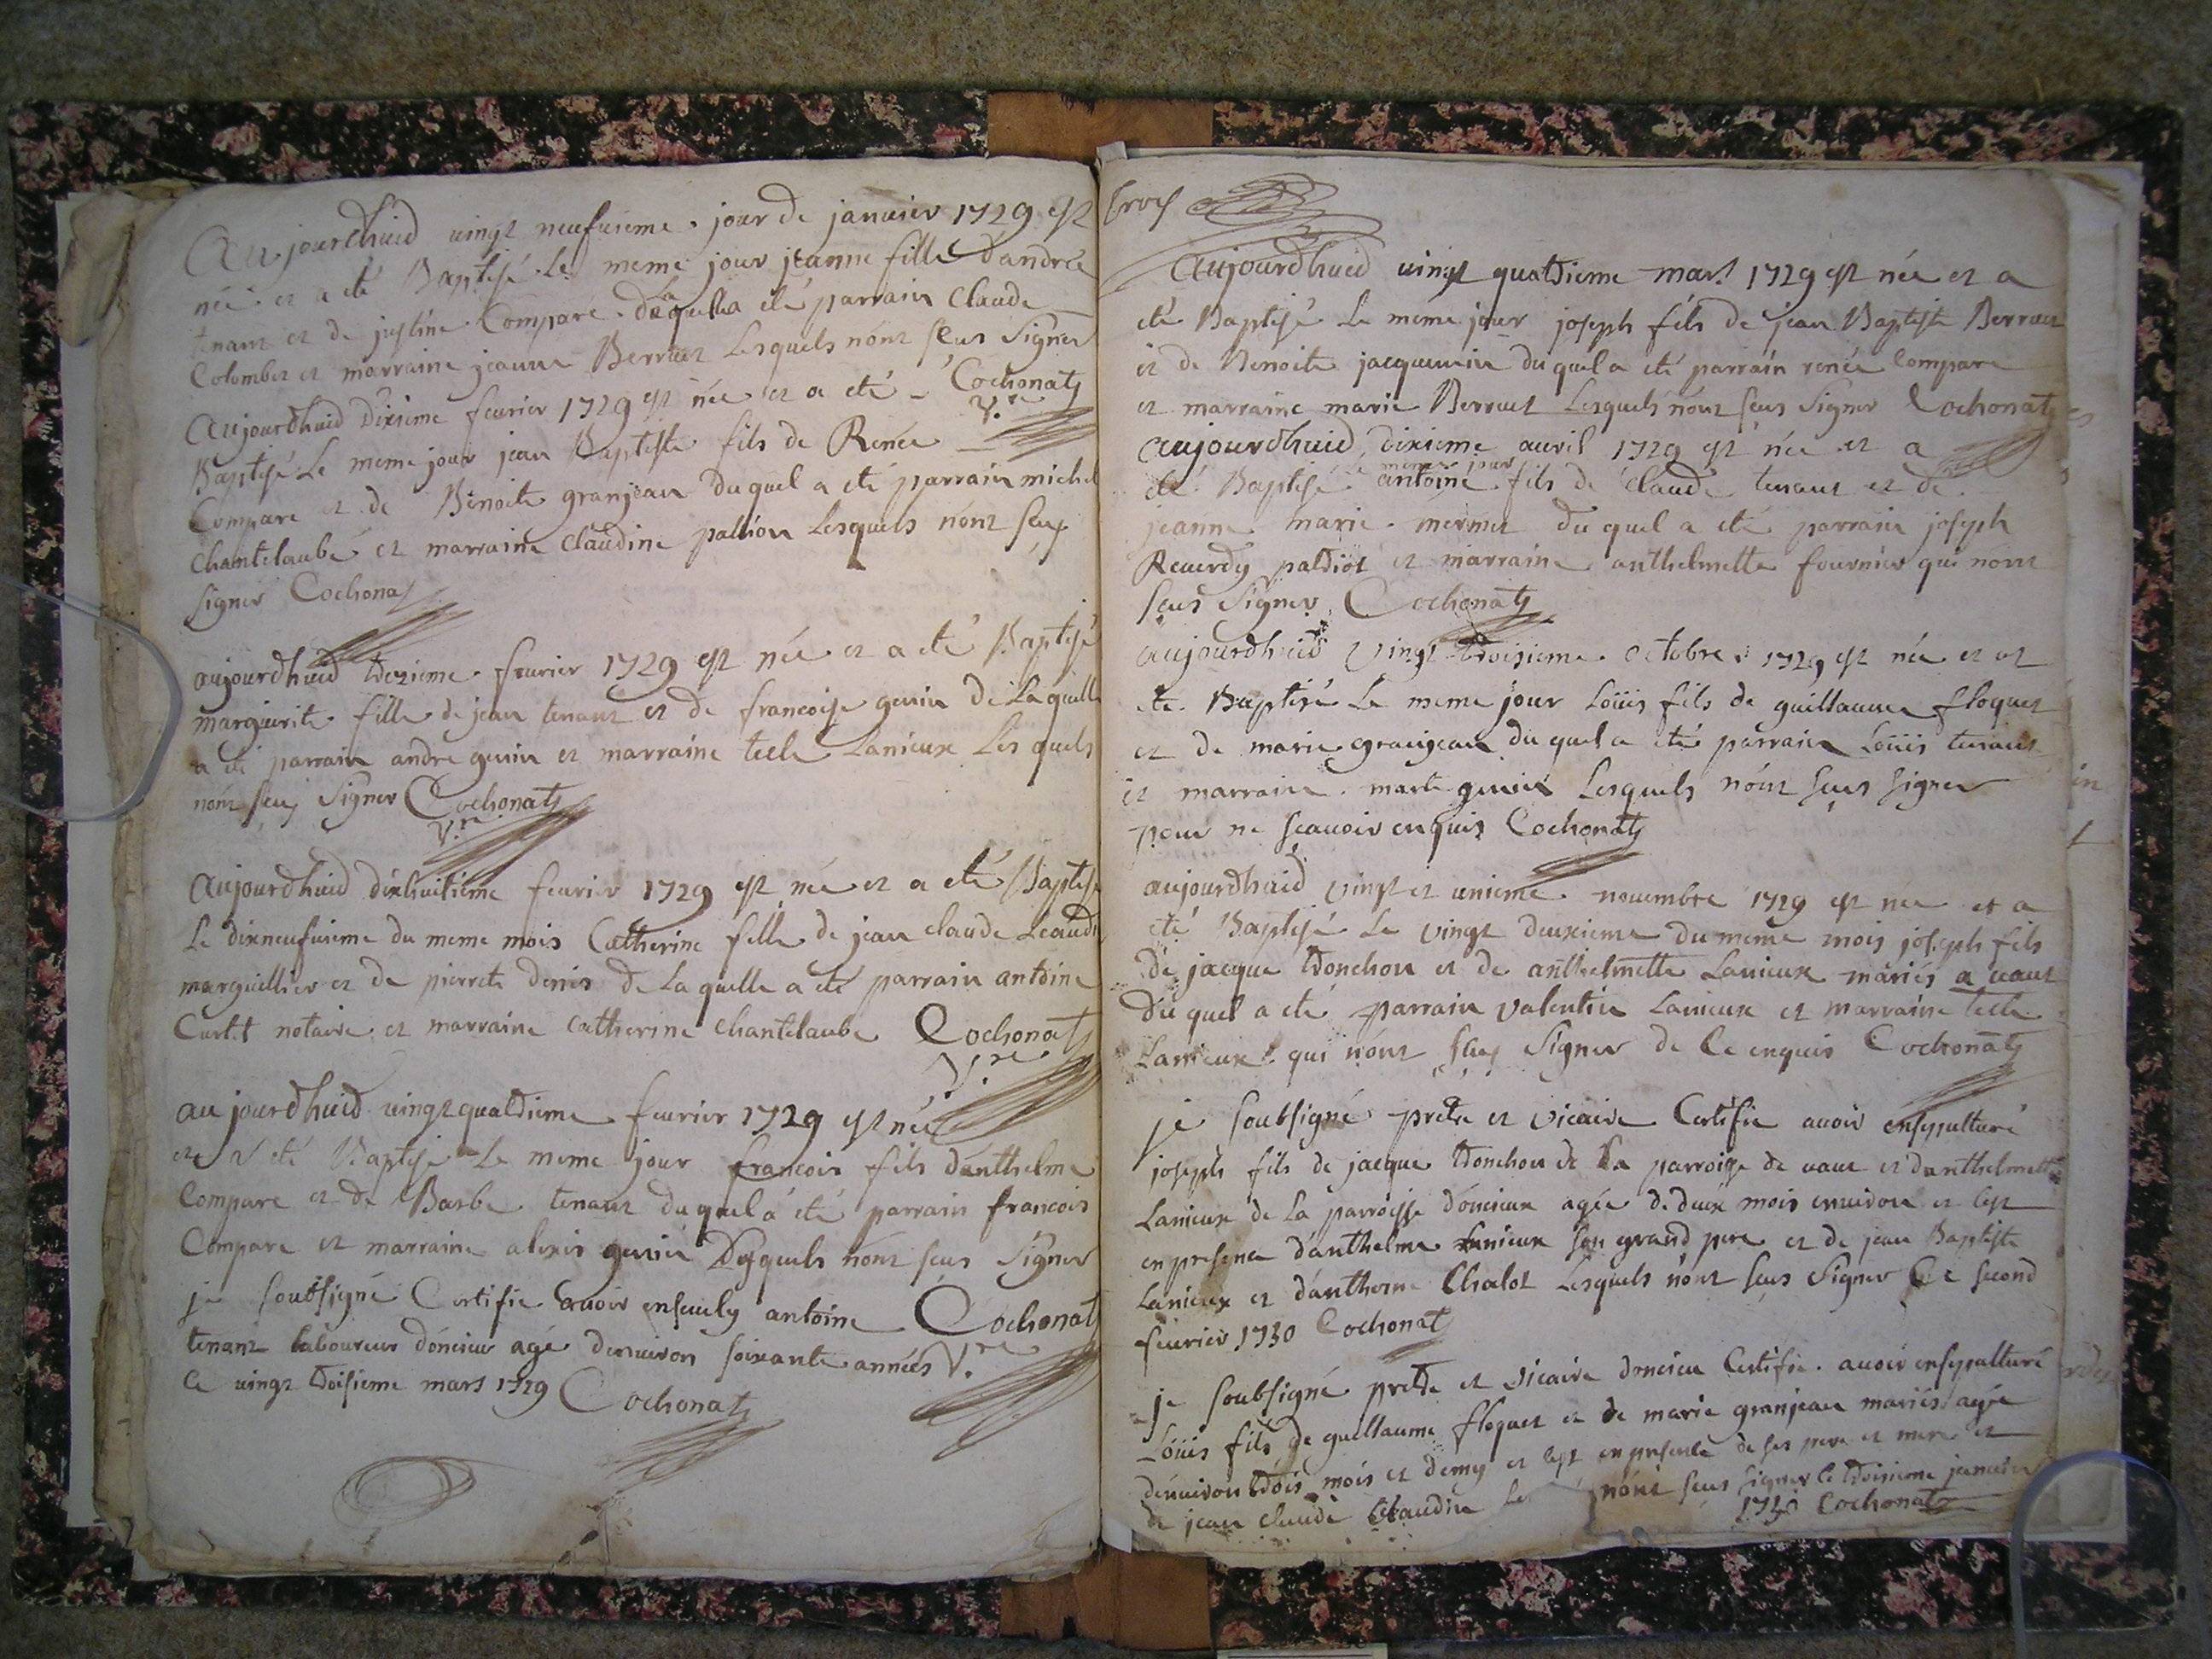 Aujourdhuid vingt neufvieme jour de janvier 1729 est
née et a eté Baptisé le meme jour jeanne fille dandrée
tenant et de justine Compare de laquella eté parrain claude
Colombet et marraine jeanne Berruet Lesquels nont sceus signer
Aujourdhuid dixieme fevrier 1729 est née et a eté Cochonat
Baptisé Le meme jour jean Baptiste fils de Renée v.re
Compare et de Benoite granjean duquel a eté parrain michel
Chantelaube et marraine claudine pallion Lesquels nont sceus
signer Cochonat
aujourdhuid fevrier 1729 est née et a eté Baptisé
marguerite fille de jean tenant et de francoise genin de Laquelle
a eté parrain andre genin et marraine tecle Lanieux Lesquels
nont sceus signer Cochonat
v.re
Aujourdhuid dixhuitieme fevrier 1729 est née et a eté Baptisé
Le dixneufvieme du meme mois Catherine fille de jean claude
marguillier et de pierrete denis de Laquelle a eté parrain antoine
Curtet notaire et marraine catherine chantelaube Cochonat
V.re
aujourdhuid vingt quatrieme fevrier 1729 est née
et a eté Baptisé Le meme jour francois fils danthelme
Compare et de Barbe tenant duquel a eté parrain francois
Compare et marraine alexis genin Desquels nont sceus signer
je soubsigné Certifie avoir ensevely antoine Cochonat
tenant laboureur doncieu agé denviron soixante années V.re
ce vingt troisieme mars 1729 Cochonat
Aujourdhuid vingt quatrieme mars 1729 est née et a
eté Baptisé Le meme jour joseph fils de jean Baptiste Berruet
et de Benoite jacquemin duquel a eté parrain renée Compare
et marraine marie Berruet Lesquels nont sceus signer Cochonat
aujourdhuid dixieme avril 1729 est née et a
eté Baptisé Le meme jour antoine fils de claude tenant et de
jeanne marie mermet duquel a eté parrain joseph
Reverdy paldiot et marraine anthelmette fournier qui nont
sceus signer Cochonat
aujourdhuid vingt troisieme octobre 1729 est née et at
ete Baptisé Le meme jour Loüis fils de guillaume floquet
et de marie granjean duquel a eté parrain Loüis tenant
et marraine marte genin Lesquels nont sceus signer
pour ne scavoir enquis Cochonat
aujourdhuid vingt et unieme novembre 1729 est née et a
eté Baptisé Le vingt deuxieme du meme mois joseph fils
de jacque tronchon et de anthelmette Lanieux mariés a vaux
duquel a eté parrain valentin Lanieux et marraine tecle
Lanieux qui nont sceus signer de ce enquis Cochonat
je soubsigné pretre et vicaire Certifie avoir ensepulturé
joseph fils de jacque tronchon de la parroisse de vaux et danthelmette
Lanieux de La parroisse doncieux agée de deux mois environ et cest
en presence danthelme Lanieux son grand pere et de jean Baptiste
Lanieux et dantherme Chalot Lesquels nont sceus signer Ce second
fevrier 1730 Cochonat
je soubsigné pretre et vicaire doncieu Certifie avoir ensepulturé
Loüis fils de guillaume floquet et de marie granjean mariés agée
denviron trois mois et demy et cest en presence de ses pere et mere et
de jean claude nont sceus signer le troisieme janvier
1730 Cochonat